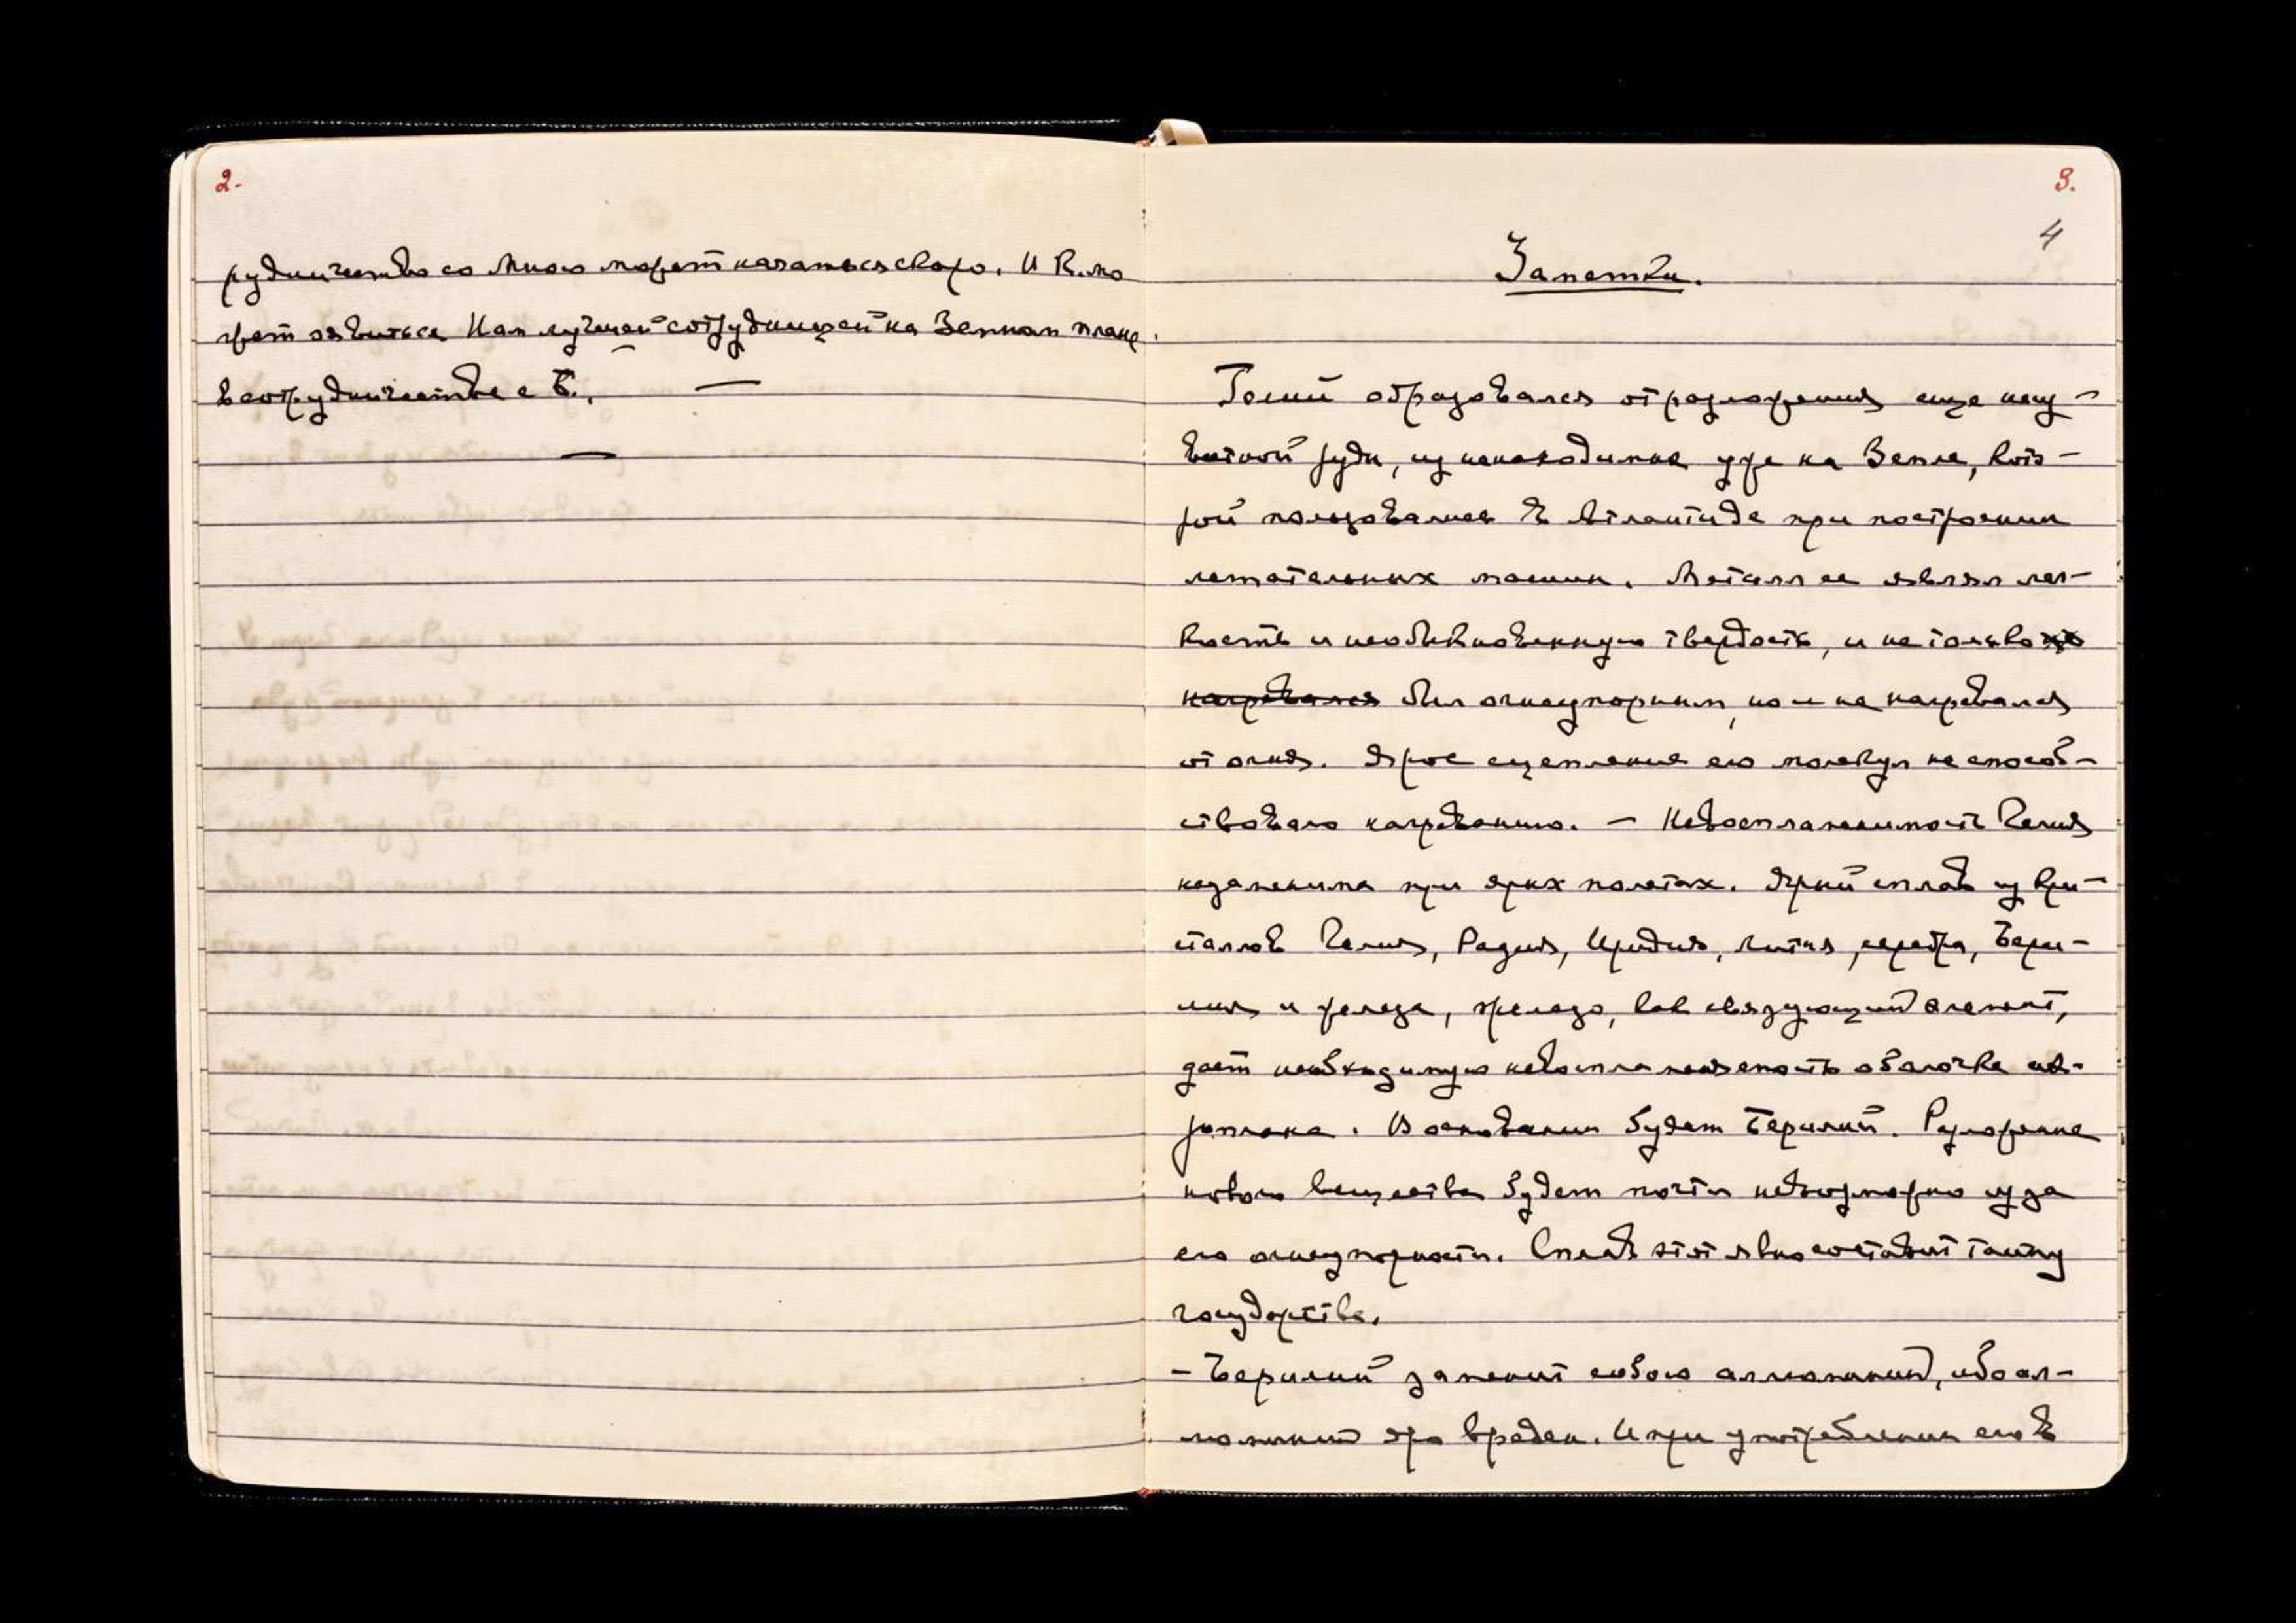 2.
рудничество со Мною может начаться скоро. И К. мо
жет явиться Нам лучшей сотрудницей на Земном плане
в сотрудничестве с Б..
3.
4
Заметки.
Гелий образовался от разложения еще неиз-
вестной руды, из ненаходимых уже на Земле, кото-
рой пользовались в Атлантиде при построении
летательных машин. Металл ее являл лег-
кость и необыкновенную твердость, и не только не
нагревался был огнеупорным, но и не нагревался
от огня. Ярое сцепление его молекул не способ-
ствовало нагреванию. – Невоспламенимость Гелия
незаменима при ярых полетах. Ярый сплав из кри-
сталлов Гелия, Радия, Иридия, лития, серебра, Бери-
лия и железа, железо, как связующий элемент,
дает необходимую невоспламеняемость оболочке аэ-
роплана. В основании будет Берилий. Разложение
нового вещества будет почти невозможно из за
его огнеупорности. Сплав этот явно составит тайну
государства.
– Берилий заменит собою аллюминий, ибо ал-
люминий яро вреден. И при употреблении его в